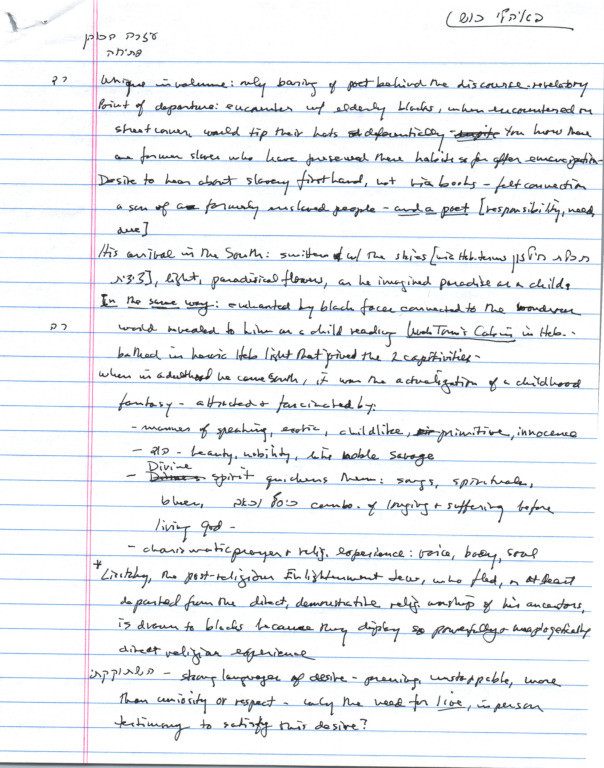 באהלי כוש
עזרה הכהן
פתיחה
Unique in volume: only baring of poet behind the discourse - revelatory
Point of departure: encounter w/ elderly blacks, when encountered on
street corner, would tip their hats deferentially - You know these
are former slaves who have preserved these habits so far after emancipation -
Desire to hear about slavery firsthand, not via books - felt connection
a son of a formerly enslaved people - and a poet [responsibility, need,
His arrival in the South: smitten w/ the skies [via Heb. terms תכלת
ציצית], light, paradisical flowers, as he imagined paradise as a child.
In the same way: enchanted by black faces connected to the wondrous
world revealed to him as a child reading Uncle Tom's Cabin in Heb. -
bathed in heroic Heb light that joined the 2 captivities -
When in adulthood he came South, it was the actualization of a childhood
fantasy - attracted & fascinated by:
- manner of speaking, exotic, childlike, primitive, innocence
- beauty, nobility, like noble savage
- Divine spirit quickens them: songs, spirituals,
blues, combo. of longing & suffering before
living God -
- charismatic prayer & relig. experience: voice, body, soul
* Lisitzky, the post-religious Enlightenment Jew, who fled, or at least
departed from the direct, demonstrative relig. worship of his ancestors,
is drawn to blacks because they display so powerfully & unapologetically
direct religious experience
השתוקקתי - strong languages of desire - pressing, unstoppable, more
than curiosity or respect - only the need for live, in person
testimony to satisfy this desire?